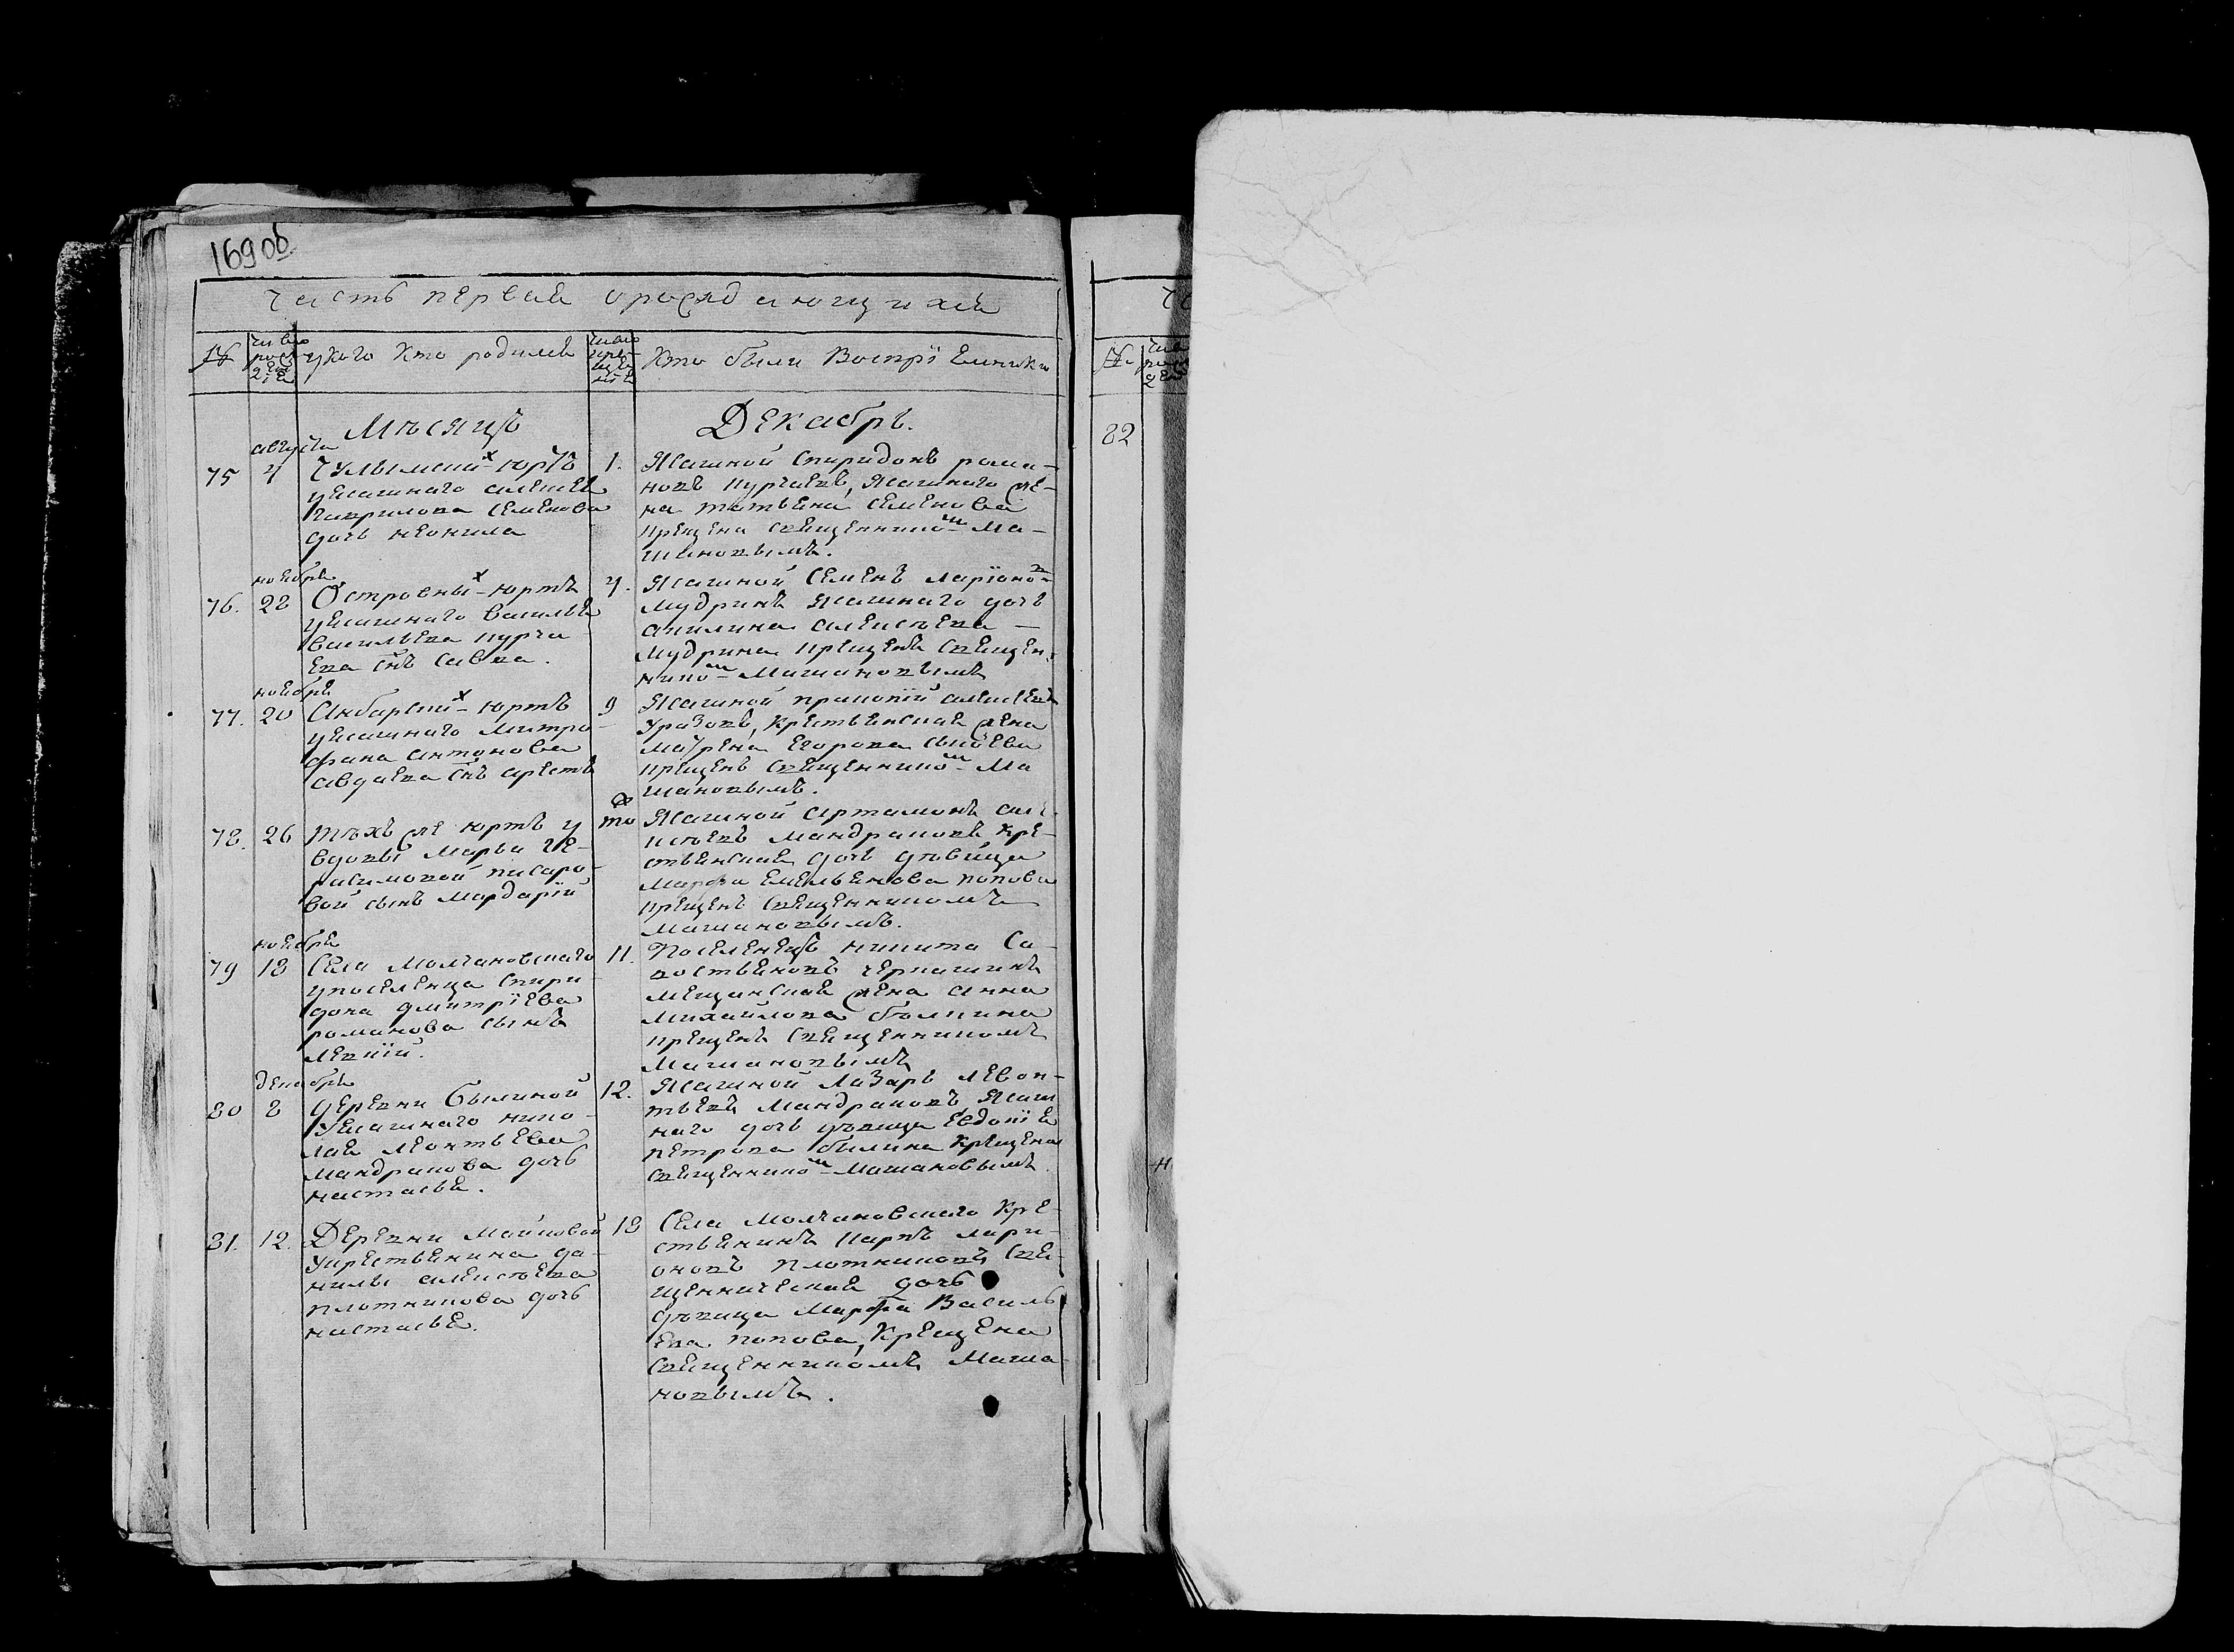 169 об
Часть первая о рождающихся
№ число рождения у кого кто родился число крещения Кто были восприемники
Мѣсяцъ Декабрь.
августа
75 4 Чулымских юртъ
уясашнаго алексея
гаврилова семенова
дочь неонила
1. Ясашной спиридонъ рома-
новъ курчаевъ, ясашнаго же-
на татьяна семенова
крещена священником Ма-
шановымъ.
ноября
76. 28 Островных юртъ
уясашнаго василья
васильева курча-
ева снъ савва.
4. Ясашной семенъ ларiонов
мудринъ ясашнаго дочь
акилина алексѣева
мудрина крещенъ священ-
ником Машановымъ
ноября
77. 20 Анбарских юртъ
уясашнаго митро-
фана антонова
авдаева снъ арестъ
9 Ясашной пракопiй алексеевъ
уразовъ, крестьянская жена
маѵрена егорова сысоева
крещенъ священником Ма
шановымъ.
78. 26 тѣхъ же юртъ у
вдовы марьи ге-
расимовой писаро-
вой сынъ мардарiй
то Ясашной артамонъ але-
ксѣевъ мандраковъ кре-
стьянская дочь дѣвица
марфа емельянова попова
крещенъ священникомъ
машановымъ.
ноября
79 18 Села молчановскаго
упоселенца спири-
дона дмитрiева
романова сынъ
левкiй.
11. Поселенецъ никита са-
востьяновъ черкашинъ
мещанская жена анна
михайлова бѣлкина
крещенъ священникомъ
машановымъ
декабря
80 8 деревни былиной
уясашнаго нико-
лая леонтьева
мандракова дочь
настасья.
12. Ясашной лазарь левон-
тьевъ мандраковъ ясаш
наго дочь дѣвица евдокiя
петрова былина крещена
священником машановымъ.
81. 12. Деревни майковой
укрестьянина да-
нилы алексѣева
плотникова дочь
настасья.
18 Села молчановскаго кре-
стьянинъ карпъ лари-
оновъ плотниковъ свя-
щенническая дочь
дѣвица марфа василь
ева попова, крещена
священникомъ маша-
новымъ.
82